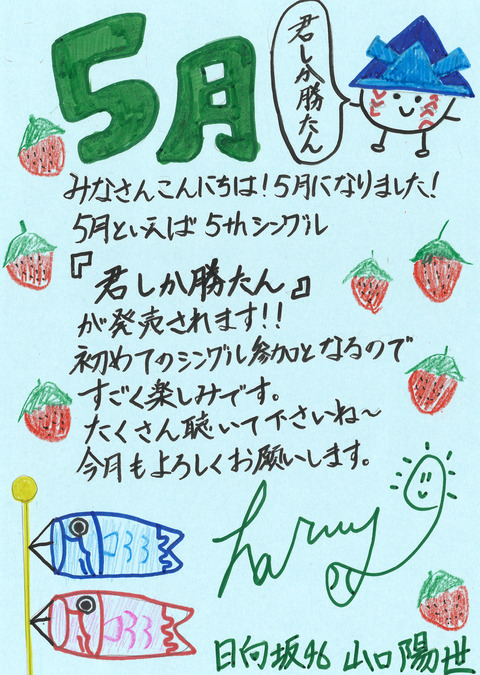 5月
君しか勝たん
みなさんこんにちは！5月になりました！
5月といえば 5thシングル
『君しか勝たん』
が発売されます！！
初めてのシングル参加となるので
すごく楽しみです。
たくさん聴いて下さいね〜
今月もよろしくお願いします。
haruyo
日向坂46 山口陽世